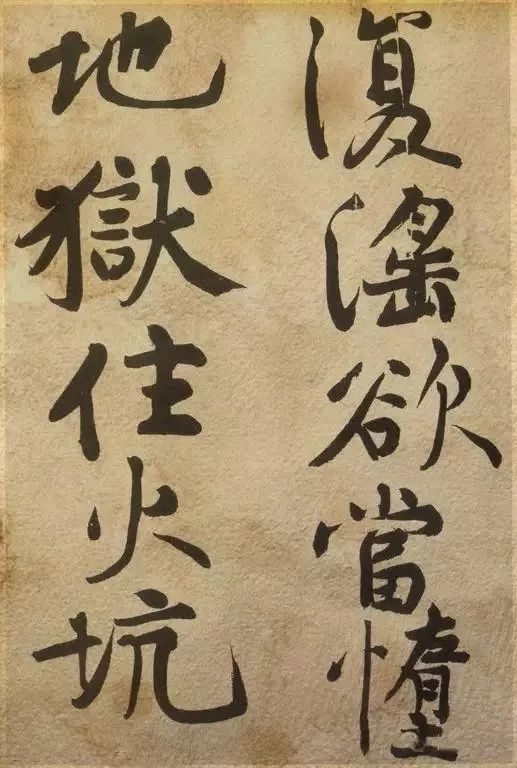 復滛欲當墮
地獄住火坑